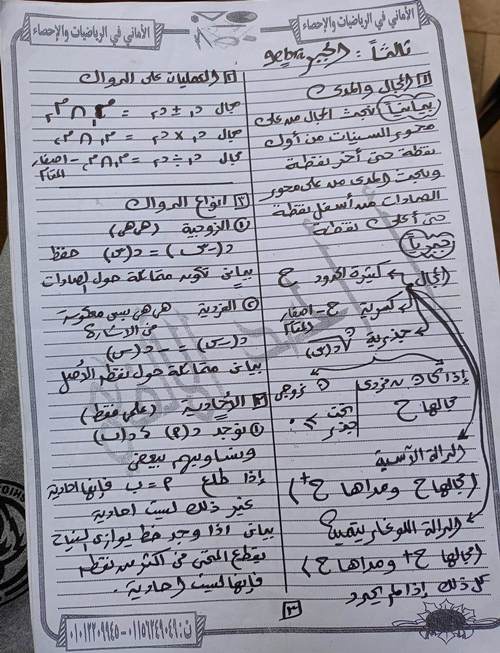 الأماني في الرياضيات والإحصاء
الأماني في الرياضيات والإحصاء
ثالثاً: الجبر
المجال والمدى
بيانياً نبحث المجال من على
محور السينات من أول
نقطة حتى آخر نقطة
ونبحث المدى من على محور
الصادات من أسفل نقطة
حتى أعلى نقطة
جبرياً
المجال ← كثيرة الحدود ح
كسرية ح - اصفار المقام
جذرية د(س)
إذا كان ن فردى
مجالها ح
ن زوجى
تحت الجذر ≥ ٠
الدالة الأسية
(مجالها ح ومداها ح+)
الدالة اللوغاريتمية
(مجالها ح+ ومداها ح)
كل ذلك إذا لم يحدد
١ العمليات على الدوال
مجال د١ ± د٢ = م١ ∩ م٢
مجال د١ × د٢ = م١ ∩ م٢
مجال د١ ÷ د٢ = م١ ∩ م٢ - اصفار المقام
٢ أنواع الدوال
١ الزوجية (هي هي)
د(-س) = د(س) فقط
بيانى تكون متماثلة حول الصادات
٢ الفردية هي هي بس معكوسة
فى الاشارة
د(-س) = - د(س)
بيانى متماثلة حول نقطة الأصل
٣ الأحادية (على فقط)
١ نوجد د(٩) ، د(ب)
ونساويهم ببعض
إذا طلع ٩ = ب فإنها احادية
غير ذلك ليست احادية
بيانى اذا وجد خط يوازى السينات
يقطع المنحنى فى اكثر من نقطة
فإنها ليست احادية.
٣
ت: ٠١١٥٦٢٤٩٠٤٩ - ٠١٠١٢٢٠٩٩٤٥